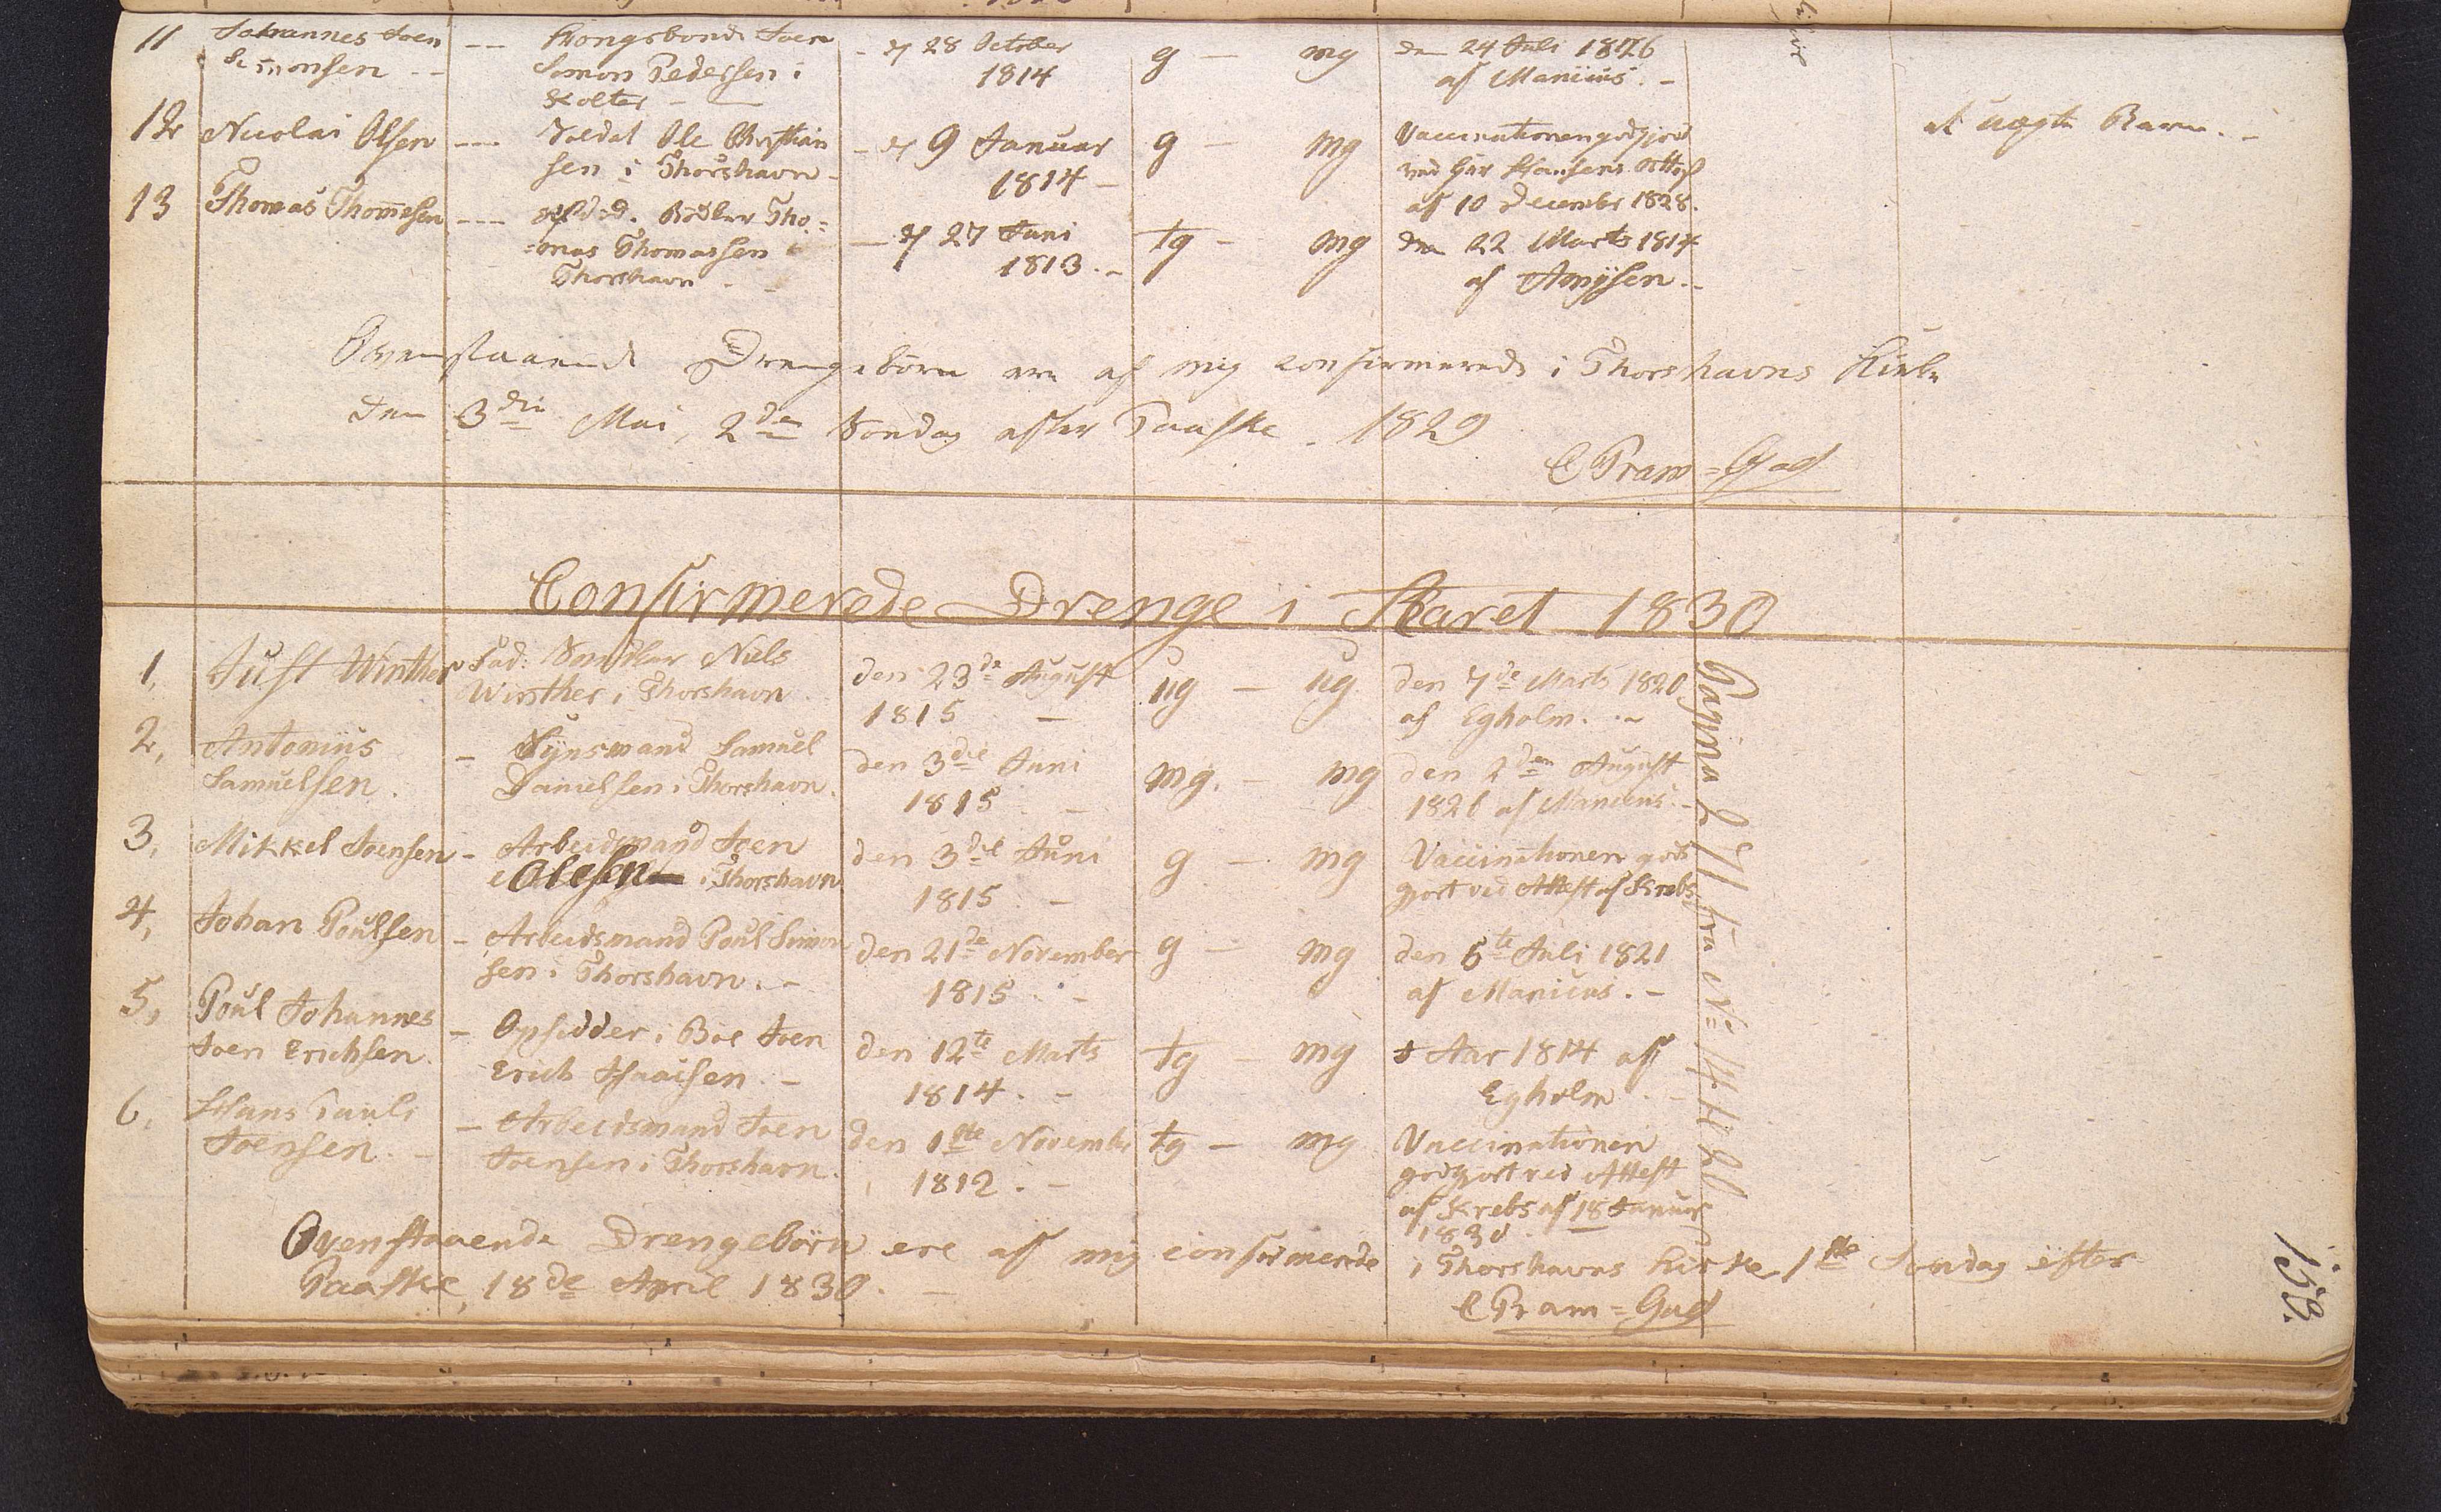 11 Johannes Joen -- Kongsbonde Joen - d 28 October g - mg den 24 Juli 1826
Simonsen -- Simon Pedersen i 1814 af Manicus. -
Kolter -
12 Nicolai Olsen --- Soldat Ole Christian - d 9 Januar g - mg Vaccinationen godgjord et uægte Barn. -
sen i Thorshavn - 1814 - ved Hr Hansens Attest
af 10 December 1828.
13 Thomas Thomesen --- Bødker Tho= - d 27 Juni tg - mg den 22 Marts 1814
=mas Thomassen i 1813. - af
Thorshavn - -
Ovenstaaende Drengebörn ere af mig confirmerede i Thorshavns Kirke
den 3die Mai, 2den Søndag efter Paaske. 1829
C Pram=Gad
Confirmerede Drenge i Aaret 1830
1, Just Winther Fad: Snedker Niels den 23de August ug - ug den 7de Marts 1820
Winther i Thorshavn 1815 - af Egholm. -
2, Antonius - Synsmand Samuel den 3die Juni mg. - mg den 2den August
Samuelsen. Danielsen i Thorshavn. 1815 - 1826 af Manicus. -
3, Mikkel Joensen - Arbeidsmand Joen den 3die Juni g - mg Vaccinationen god
Olesen i Thorshavn 1815. - gjort ved Attest af Krebs
4, Johan Poulsen - Arbeidsmand Poul Simon den 21de November g - mg den 5te Juli 1821
sen i Thorshavn. - 1815. - af Manicus. -
5, Poul Johannes - Opsidder i Boe Joen den 12te Marts tg - mg Aar 1814 af
Joen Erichsen. Erich Isaaisen. - 1814. - Egholm. -
6, Hans Pauli - Arbeidsmand Joen den 1ste November tg - mg Vaccinationen
Joensen. - Joensen i Thorshavn. 1812. - godgjort ved Attest
af Krebs af 18 Januar
1830.
Pagina 271 fra No 14 til 20
Ovenstaaende Drengebörn ere af mig confirmerede i Thorshavns Kirke 1ste Søndag efter
Paaske, 18de April 1830. -
C Pram=Gad
158.